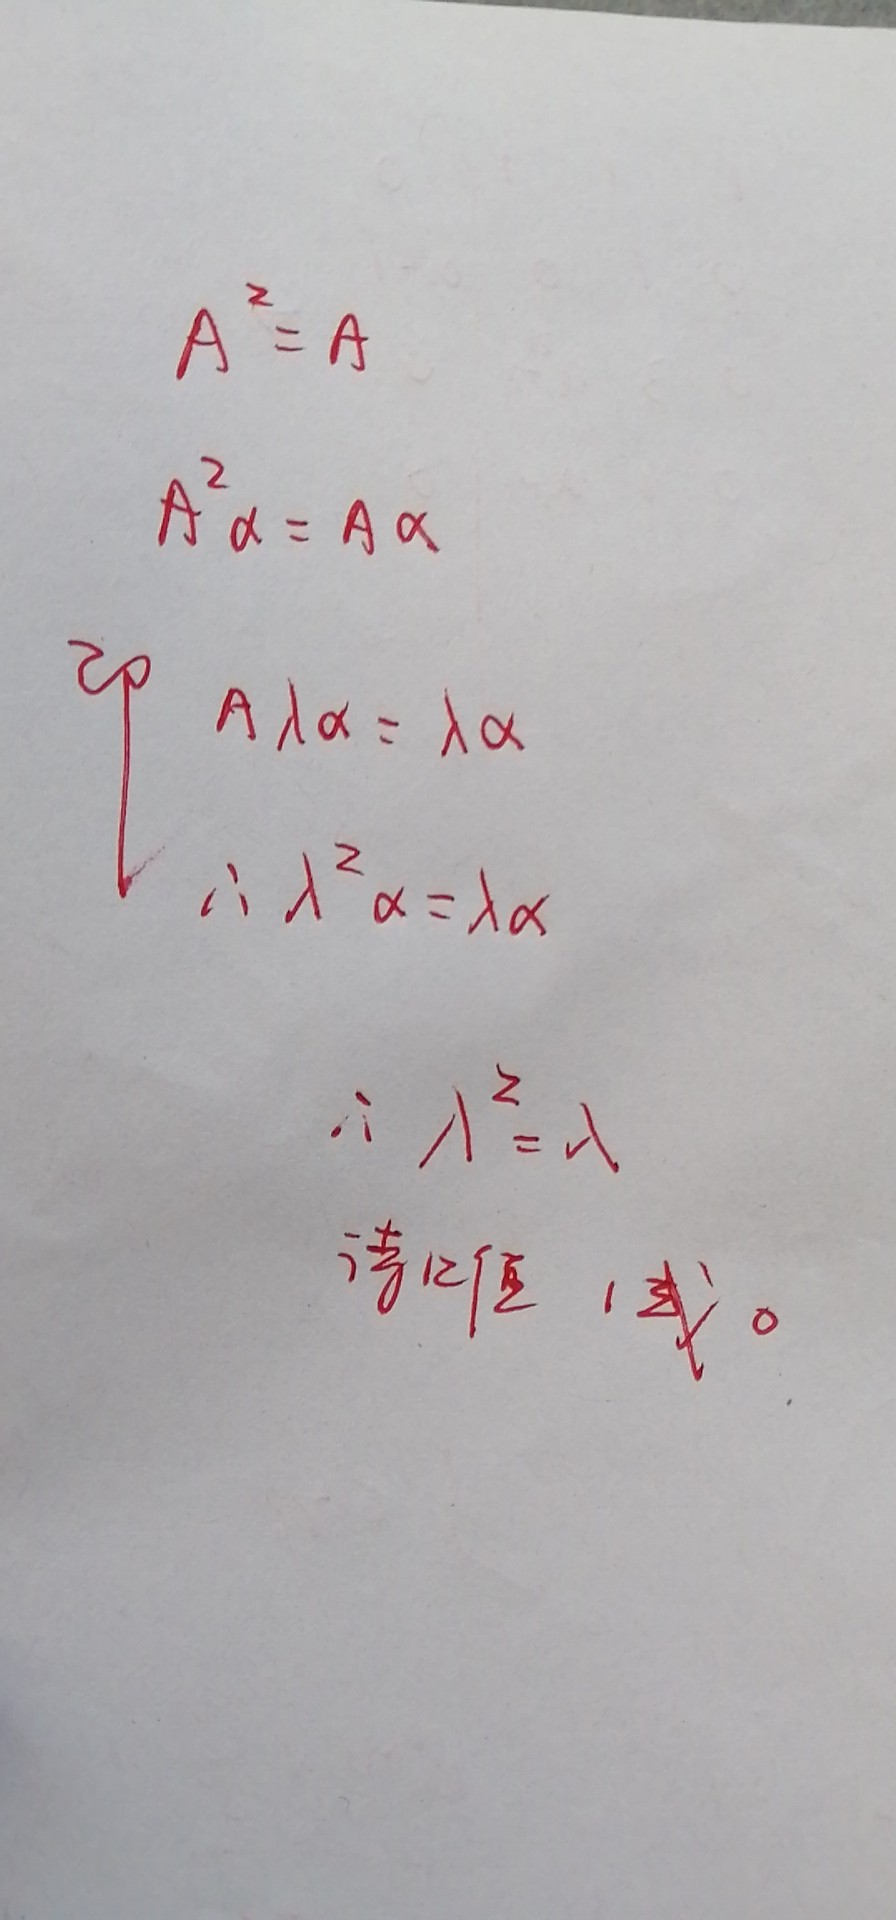 A² = A
A²α = Aα
即 Aλα = λα
∴ λ²α = λα
∴ λ² = λ
值 1或0